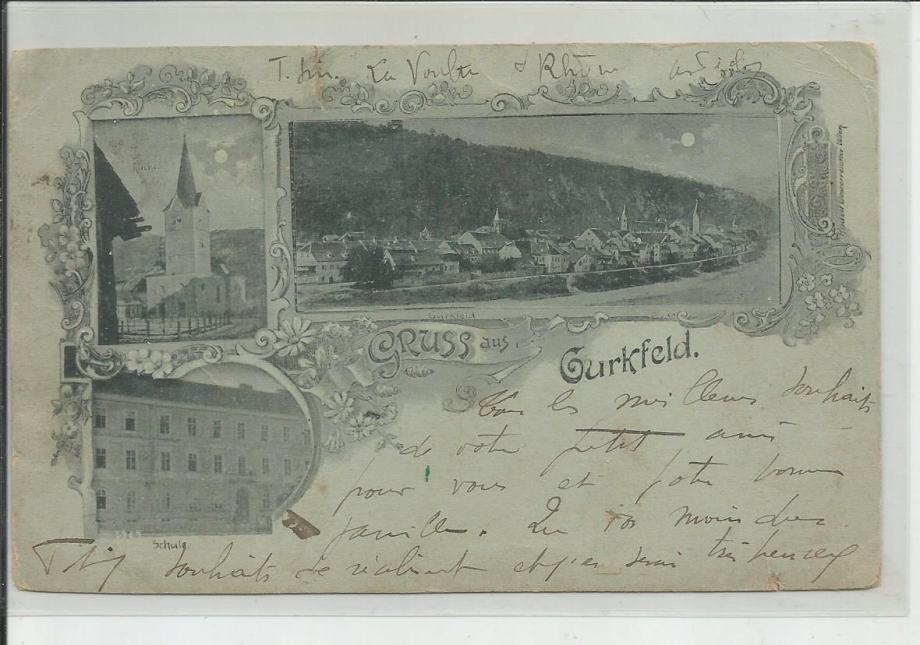 La Voulte s Rhône
Gurkfeld
GRUSS aus
Gurkfeld.
Tous les meilleurs souhaits
de votre petit ami
pour vous et votre bonne
famille. Que vos moindres
souhaits se réalisent et j'en serai très heureux
Schule